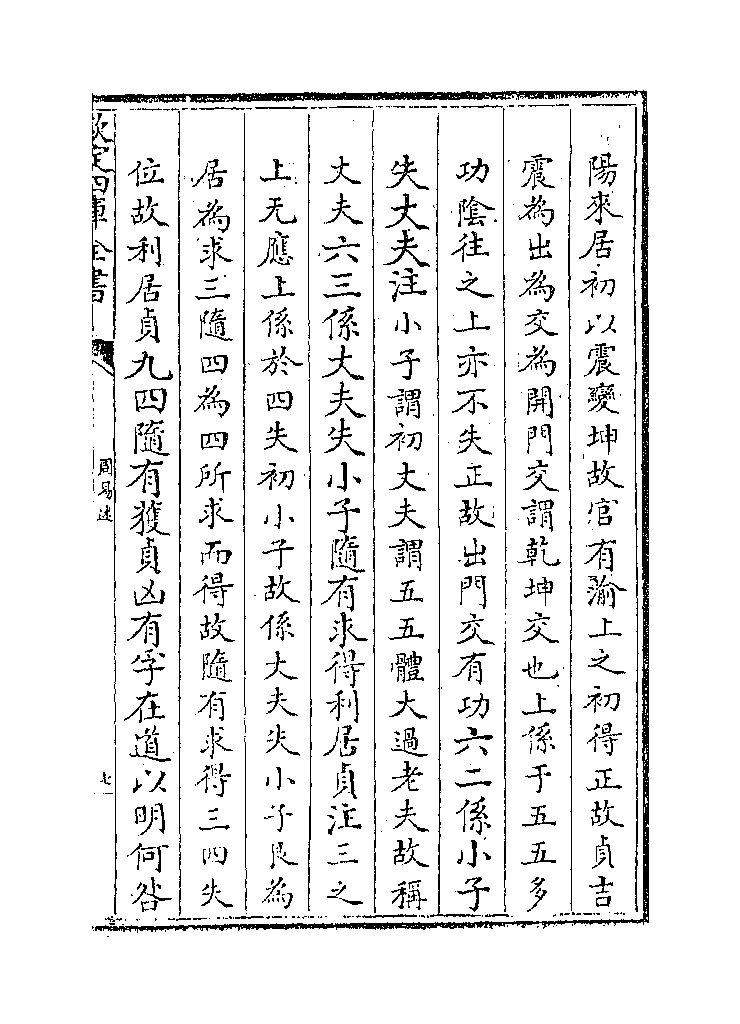 陽來居初以震變坤故官有渝上之初得正故貞吉
震為出為交為開門交謂乾坤交也上係于五五多
功陰往之上亦不失正故出門交有功六二係小子
失丈夫注小子謂初丈夫謂五五體大過老夫故稱
丈夫六三係大夫失小子隨有求得利居貞注三之
上无應上係於四失初小子故係大夫失小子艮為
居為求三隨四為四所求而得故隨有求得三四失
位故利居貞九四隨有獲貞凶有孚在道以明何咎
欽定四庫全書
周易述
七